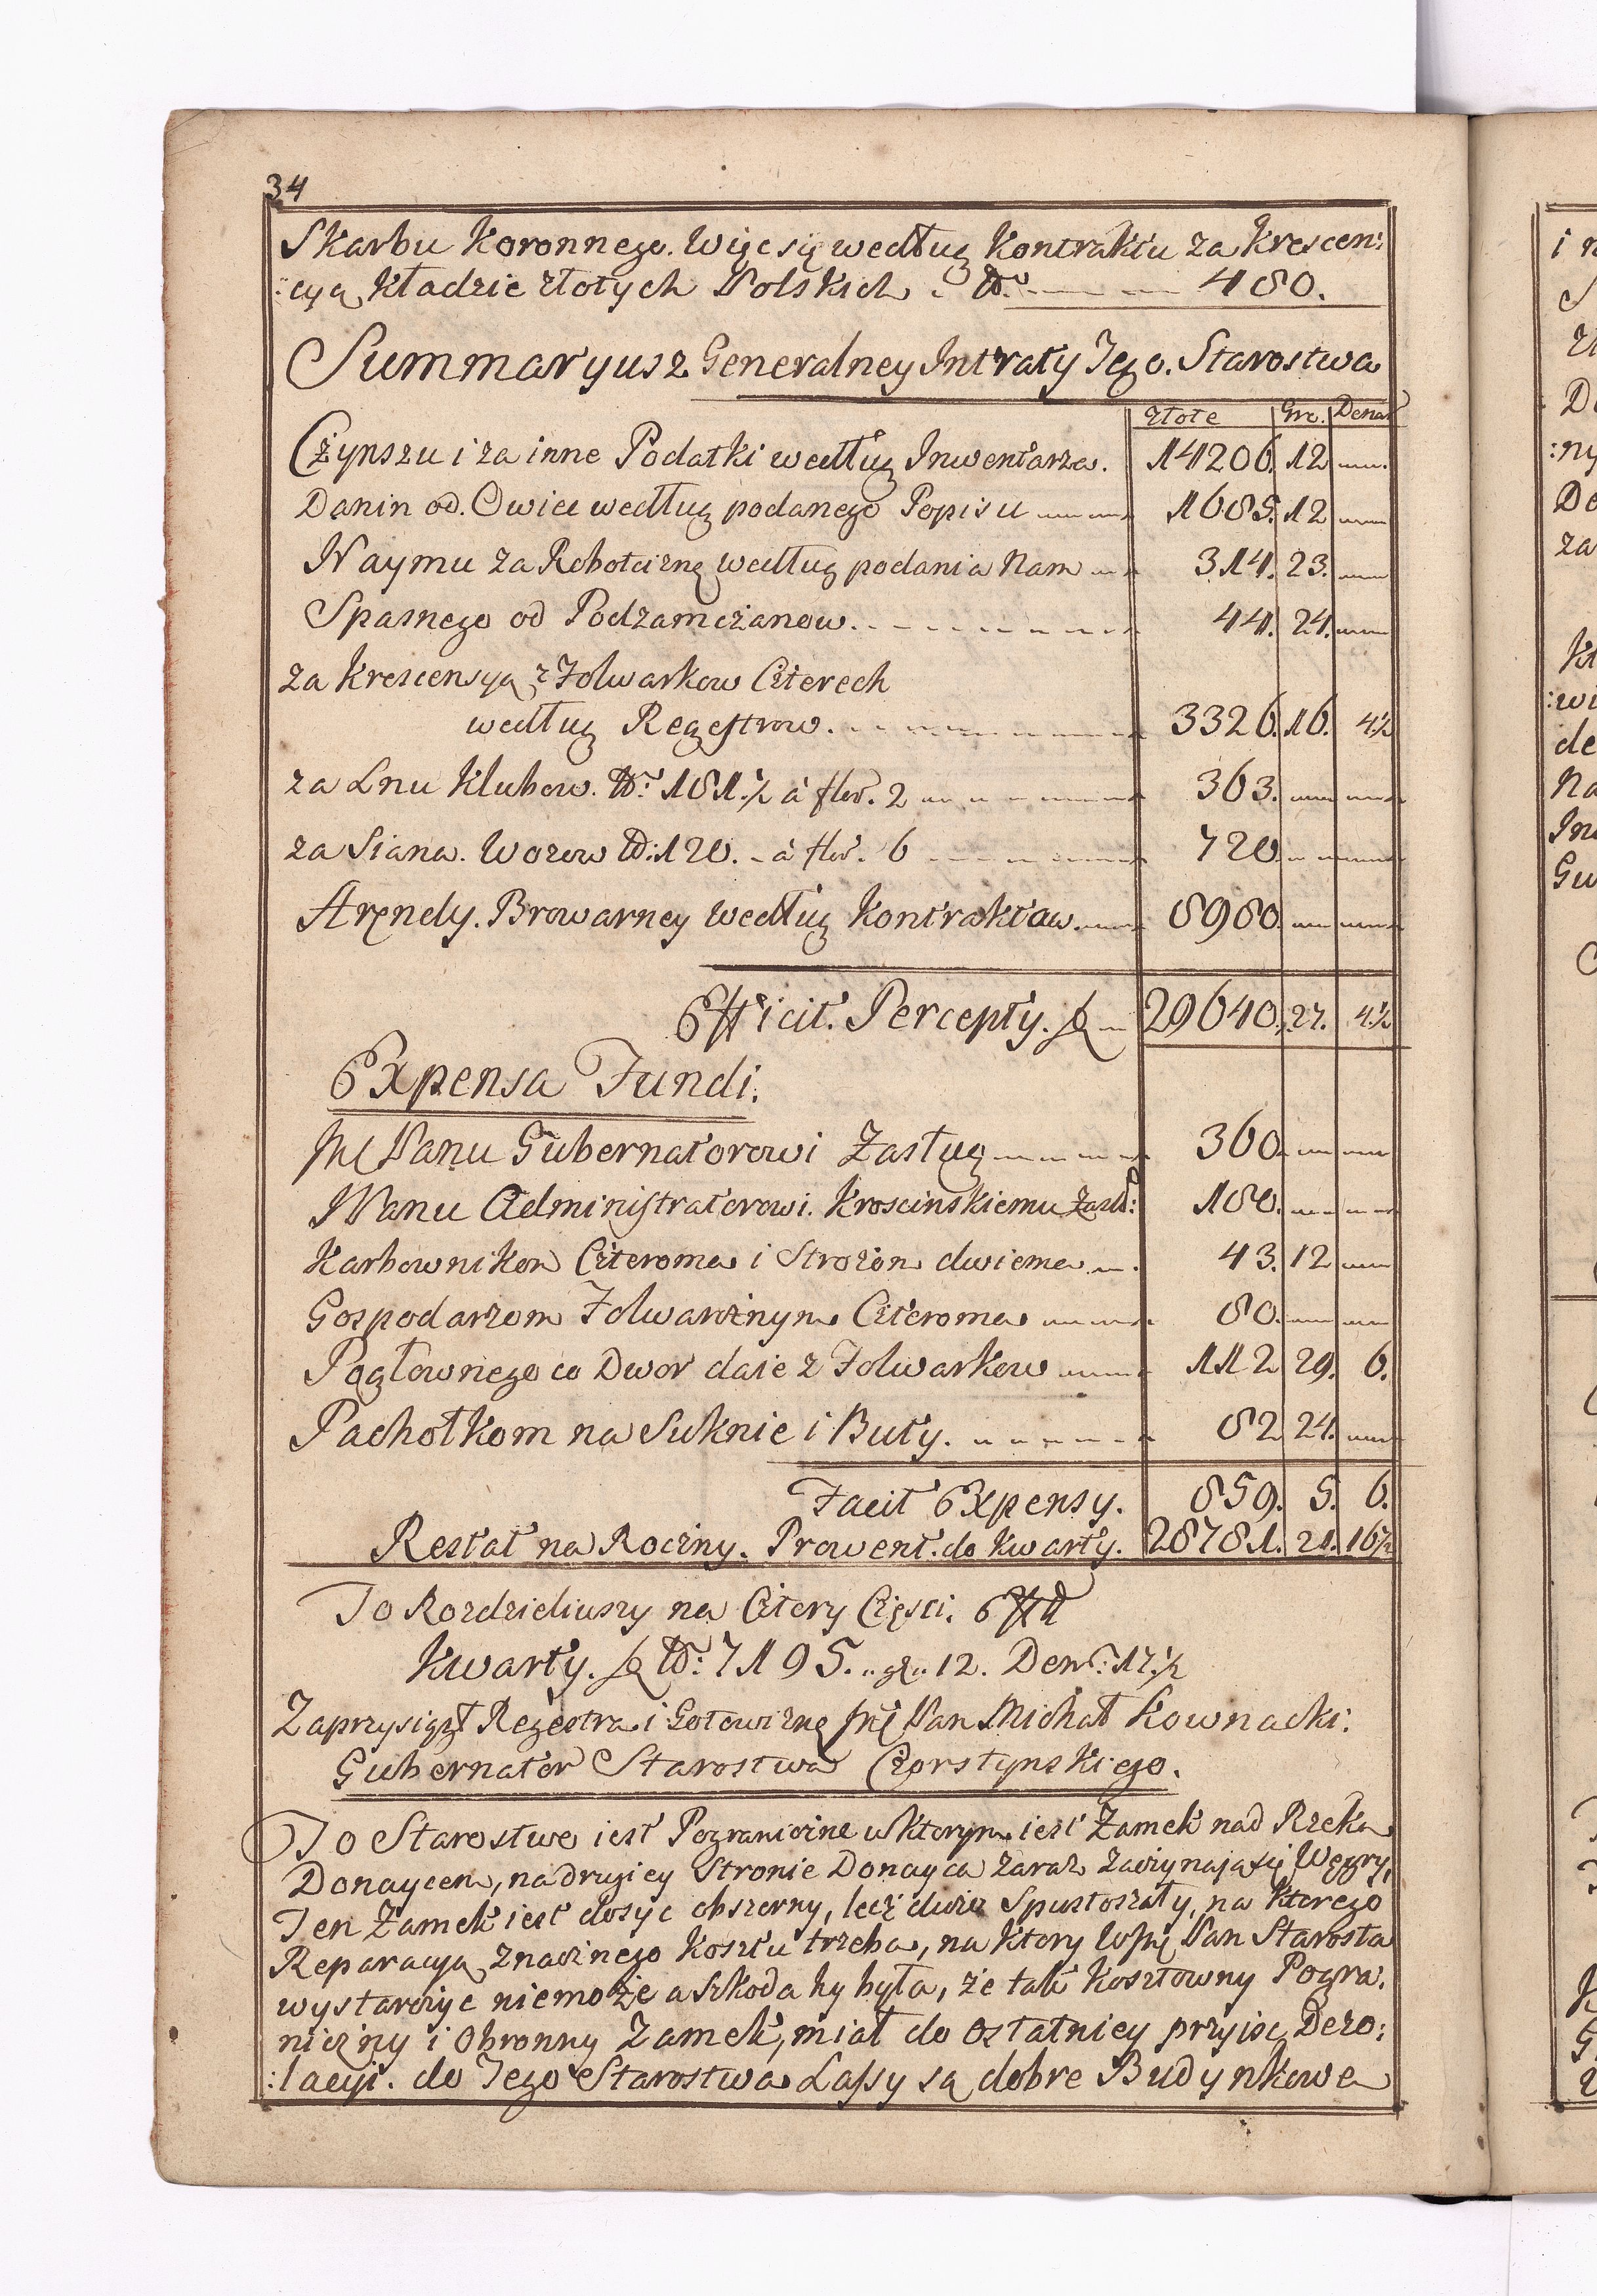 34
Skarbu Koronnego. Więc się według Kontraktu za Krescen:
:cyą Kładzie złotych Polskich . ₶. 480.
Summaryusz Generalney Intraty Tego. Starostwa
złote Gro. Denar
Czynszu i za inne Podatki według Inwentarza. 14206. 12
Danin od. Owiec według podanego Popisu 1685. 12
Naymu za Robociznę według podania Nam 314. 23.
Spasnego od Podzamczanow. 44. 24.
za Krescensyą z Folwarkow Czterech
według Regestrow. 3326. 16. 4½
za Lnu Klubow. ₶ 181.½ á flor. 2 363.
za Siana. Wozow ₶: 120. á flor. 6 720
Arendy. Browarney według Kontraktow. 8980
Efficit. Percepty. 29640. 27. 4½
Expensa Fundi.
JMć Panu Gubernatorowi Zasług 360
JPanu Administratorowi. Kroscinskiemu Zasł: 180.
Karbownikom Czteroma i Strożom dwiema 43. 12
Gospodarzom Folwarcznym Czteroma 80.
Pogłownego co Dwor daie z Folwarkow 112 29. 6.
Pachołkom na Suknie i Buty. 82 24.
Facit Expensy. 859. 5. 6.
Restat na Roczny. Prowent. do Kwarty. 28781. 21. 16½
To Rozdzieliwszy na Cztery Części. Efft
Kwarty. ₶: 7195. gr. 12. Den: 17.½
Zaprzysiągł Regestra i Gotowiznę JMć Pan Michał Kownacki.
Gubernator Starostwa Czorstynskiego.
To Starostwo iest Pograniczne w ktorym iest Zamek nad Rzeką
Donaycem, na drugiey Stronie Donayca zaraz zaczynają się Węgry,
Ten Zamek iest dosyc obszerny, lecz dużo Spustoszały, na ktorego
Reparacyą znacznego Kosztu trzeba, na ktory WJMć Pan Starosta
wystarczyc niemoże a szkoda by była, że tak Kosztowny Pogra:
niczny i Obronny Zamek, miał do ostatniey przyiść Dezo:
:lacyi. do Tego Starostwa Lassy są dobre Budynkowe